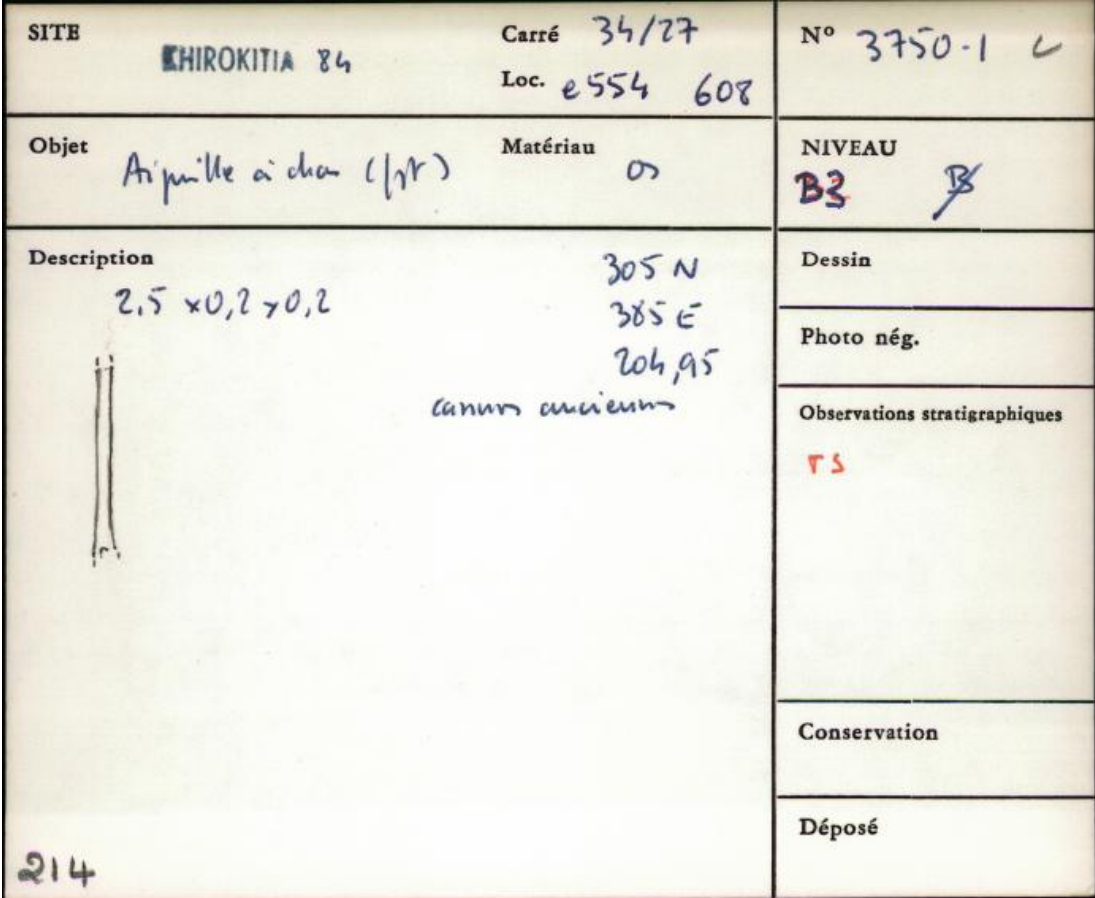 SITE
KHIROKITIA 84
Carré 34/27
Loc. e554 608
Nº 3750-1
Objet
Aiguille à chas (fgt)
Matériau
os
NIVEAU
B3 B
Description
2,5 x0,2 x0,2
305 N
385 E
204,95
cassures anciennes
Dessin
Photo nég.
Observations stratigraphiques
TS
Conservation
Déposé
214